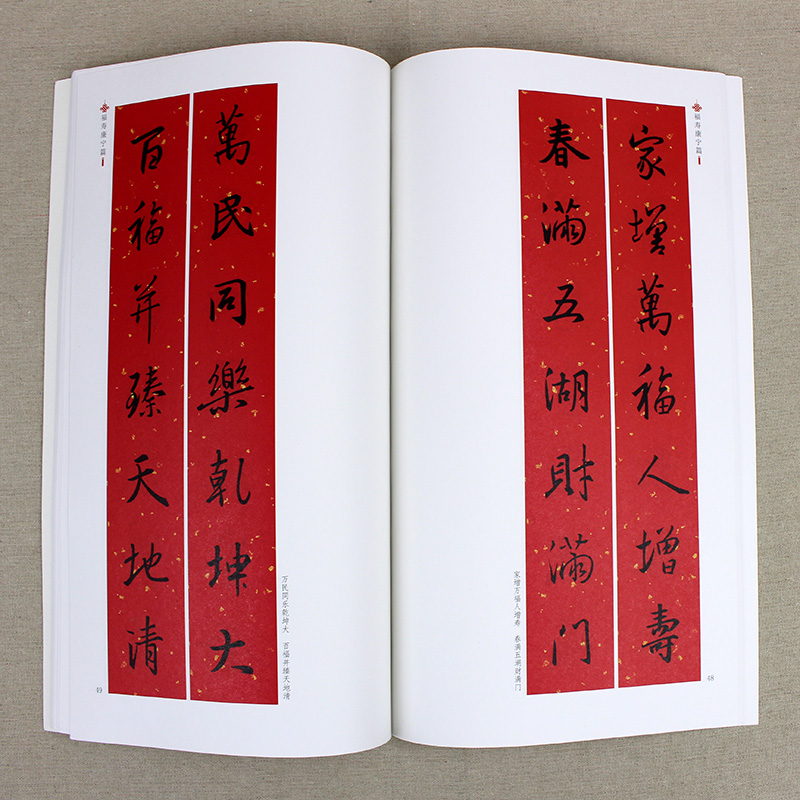 福寿康宁篇
家增萬福人增壽
春滿五湖財滿門
家增万福人增寿 春满五湖财满门
48
福寿康宁篇
萬民同樂乾坤大
百福并臻天地清
万民同乐乾坤大 百福并臻天地清
49